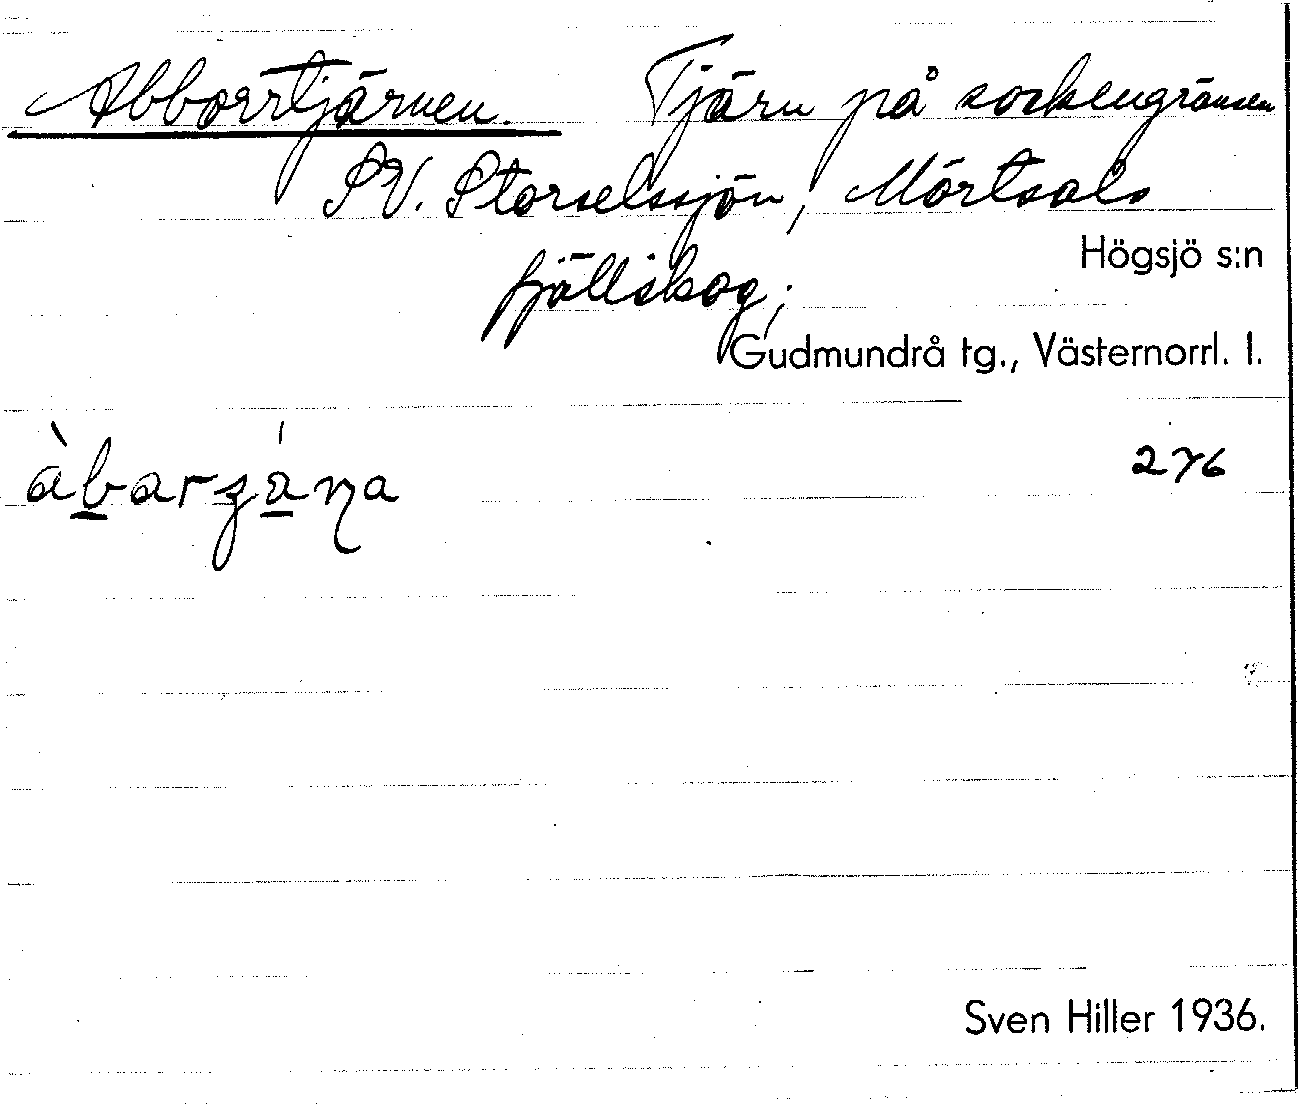 Abborrtjärnen. Tjärn på sockengränsen
SV. Storselssjön, Mörtsals
fjällskog;
Högsjö s:n
Gudmundrå tg., Västernorrl. l.
276
Sven Hiller 1936.